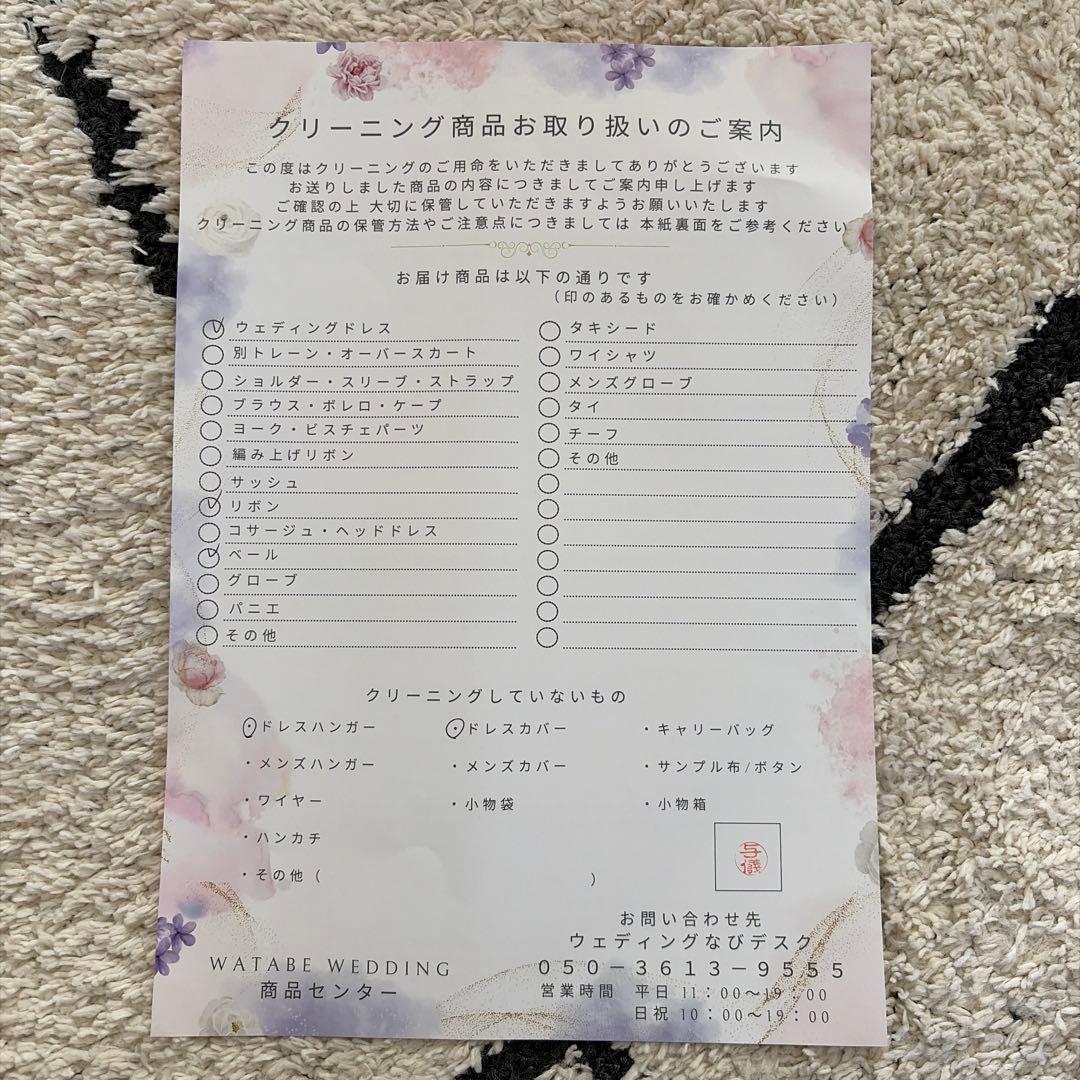 クリーニング商品お取り扱いのご案内
この度はクリーニングのご用命をいただきましてありがとうございます
お送りしました商品の内容につきましてご案内申し上げます
ご確認の上 大切に保管していただきますようお願いいたします
クリーニング商品の保管方法やご注意点につきましては 本紙裏面をご参考ください
お届け商品は以下の通りです
（印のあるものをお確かめください）
ウェディングドレス
別トレーン・オーバースカート
ショルダー・スリーブ・ストラップ
ブラウス・ボレロ・ケープ
ヨーク・ビスチェパーツ
編み上げリボン
サッシュ
リボン
コサージュ・ヘッドドレス
ベール
グローブ
パニエ
その他
タキシード
ワイシャツ
メンズグローブ
タイ
チーフ
その他
クリーニングしていないもの
・ドレスハンガー ・ドレスカバー ・キャリーバッグ
・メンズハンガー ・メンズカバー ・サンプル布/ボタン
・ワイヤー ・小物袋 ・小物箱
・ハンカチ
・その他（ ）
与儀
お問い合わせ先
ウェディングなびデスク
050－3613－9555
営業時間 平日 11：00～19：00
日祝 10：00～19：00
WATABE WEDDING
商品センター